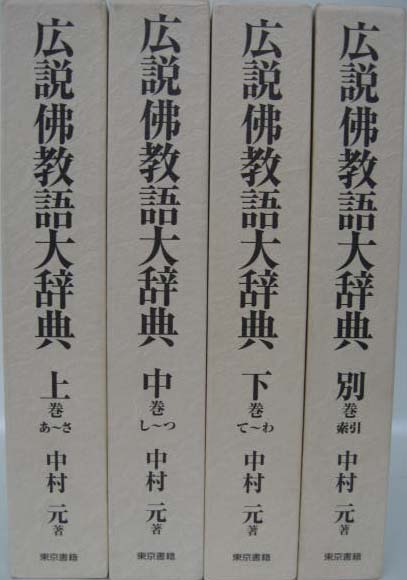 広説佛教語大辞典
上巻
あ～さ
中村元著
東京書籍
広説佛教語大辞典
中巻
し～つ
中村元著
東京書籍
広説佛教語大辞典
下巻
て～わ
中村元著
東京書籍
広説佛教語大辞典
別巻
索引
中村元著
東京書籍